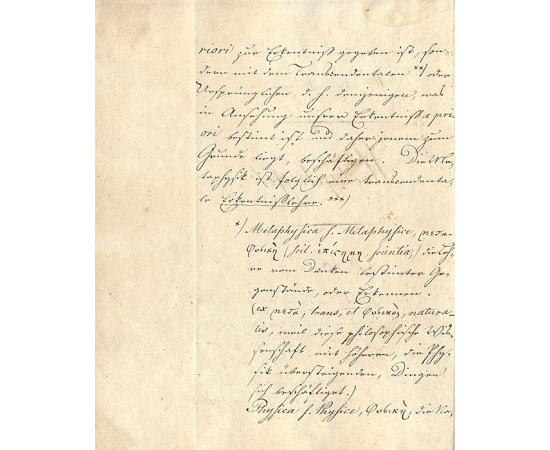 riori zur Erkentniß gegeben ist, son
dern mit dem Transcendentalen **) oder
Ursprünglichen d. h. demjenigen, was
in Ansehung unsrer Erkentniß a pri
ori bestimt ist und daher jenem zum
Grunde liegt, beschäftigen. Die Me-
taphysik ist folglich eine transcendenta-
le Erkentnißlehre. ***)
*) Metaphysica s. Metaphysice, μετα-
φυσικη (scil. επιςημη scientia,) die Leh-
re vom Denken bestimter Ge-
genstände, oder Erkennen.
(ex μετὰ, trans, et φυσικὸς, natura-
lis, weil diese philosophische Wis-
senschaft mit höheren, die Phy-
sik übersteigenden, Dingen
sich beschäftiget.)
Physica s. Physice, φυσικη, die Na-